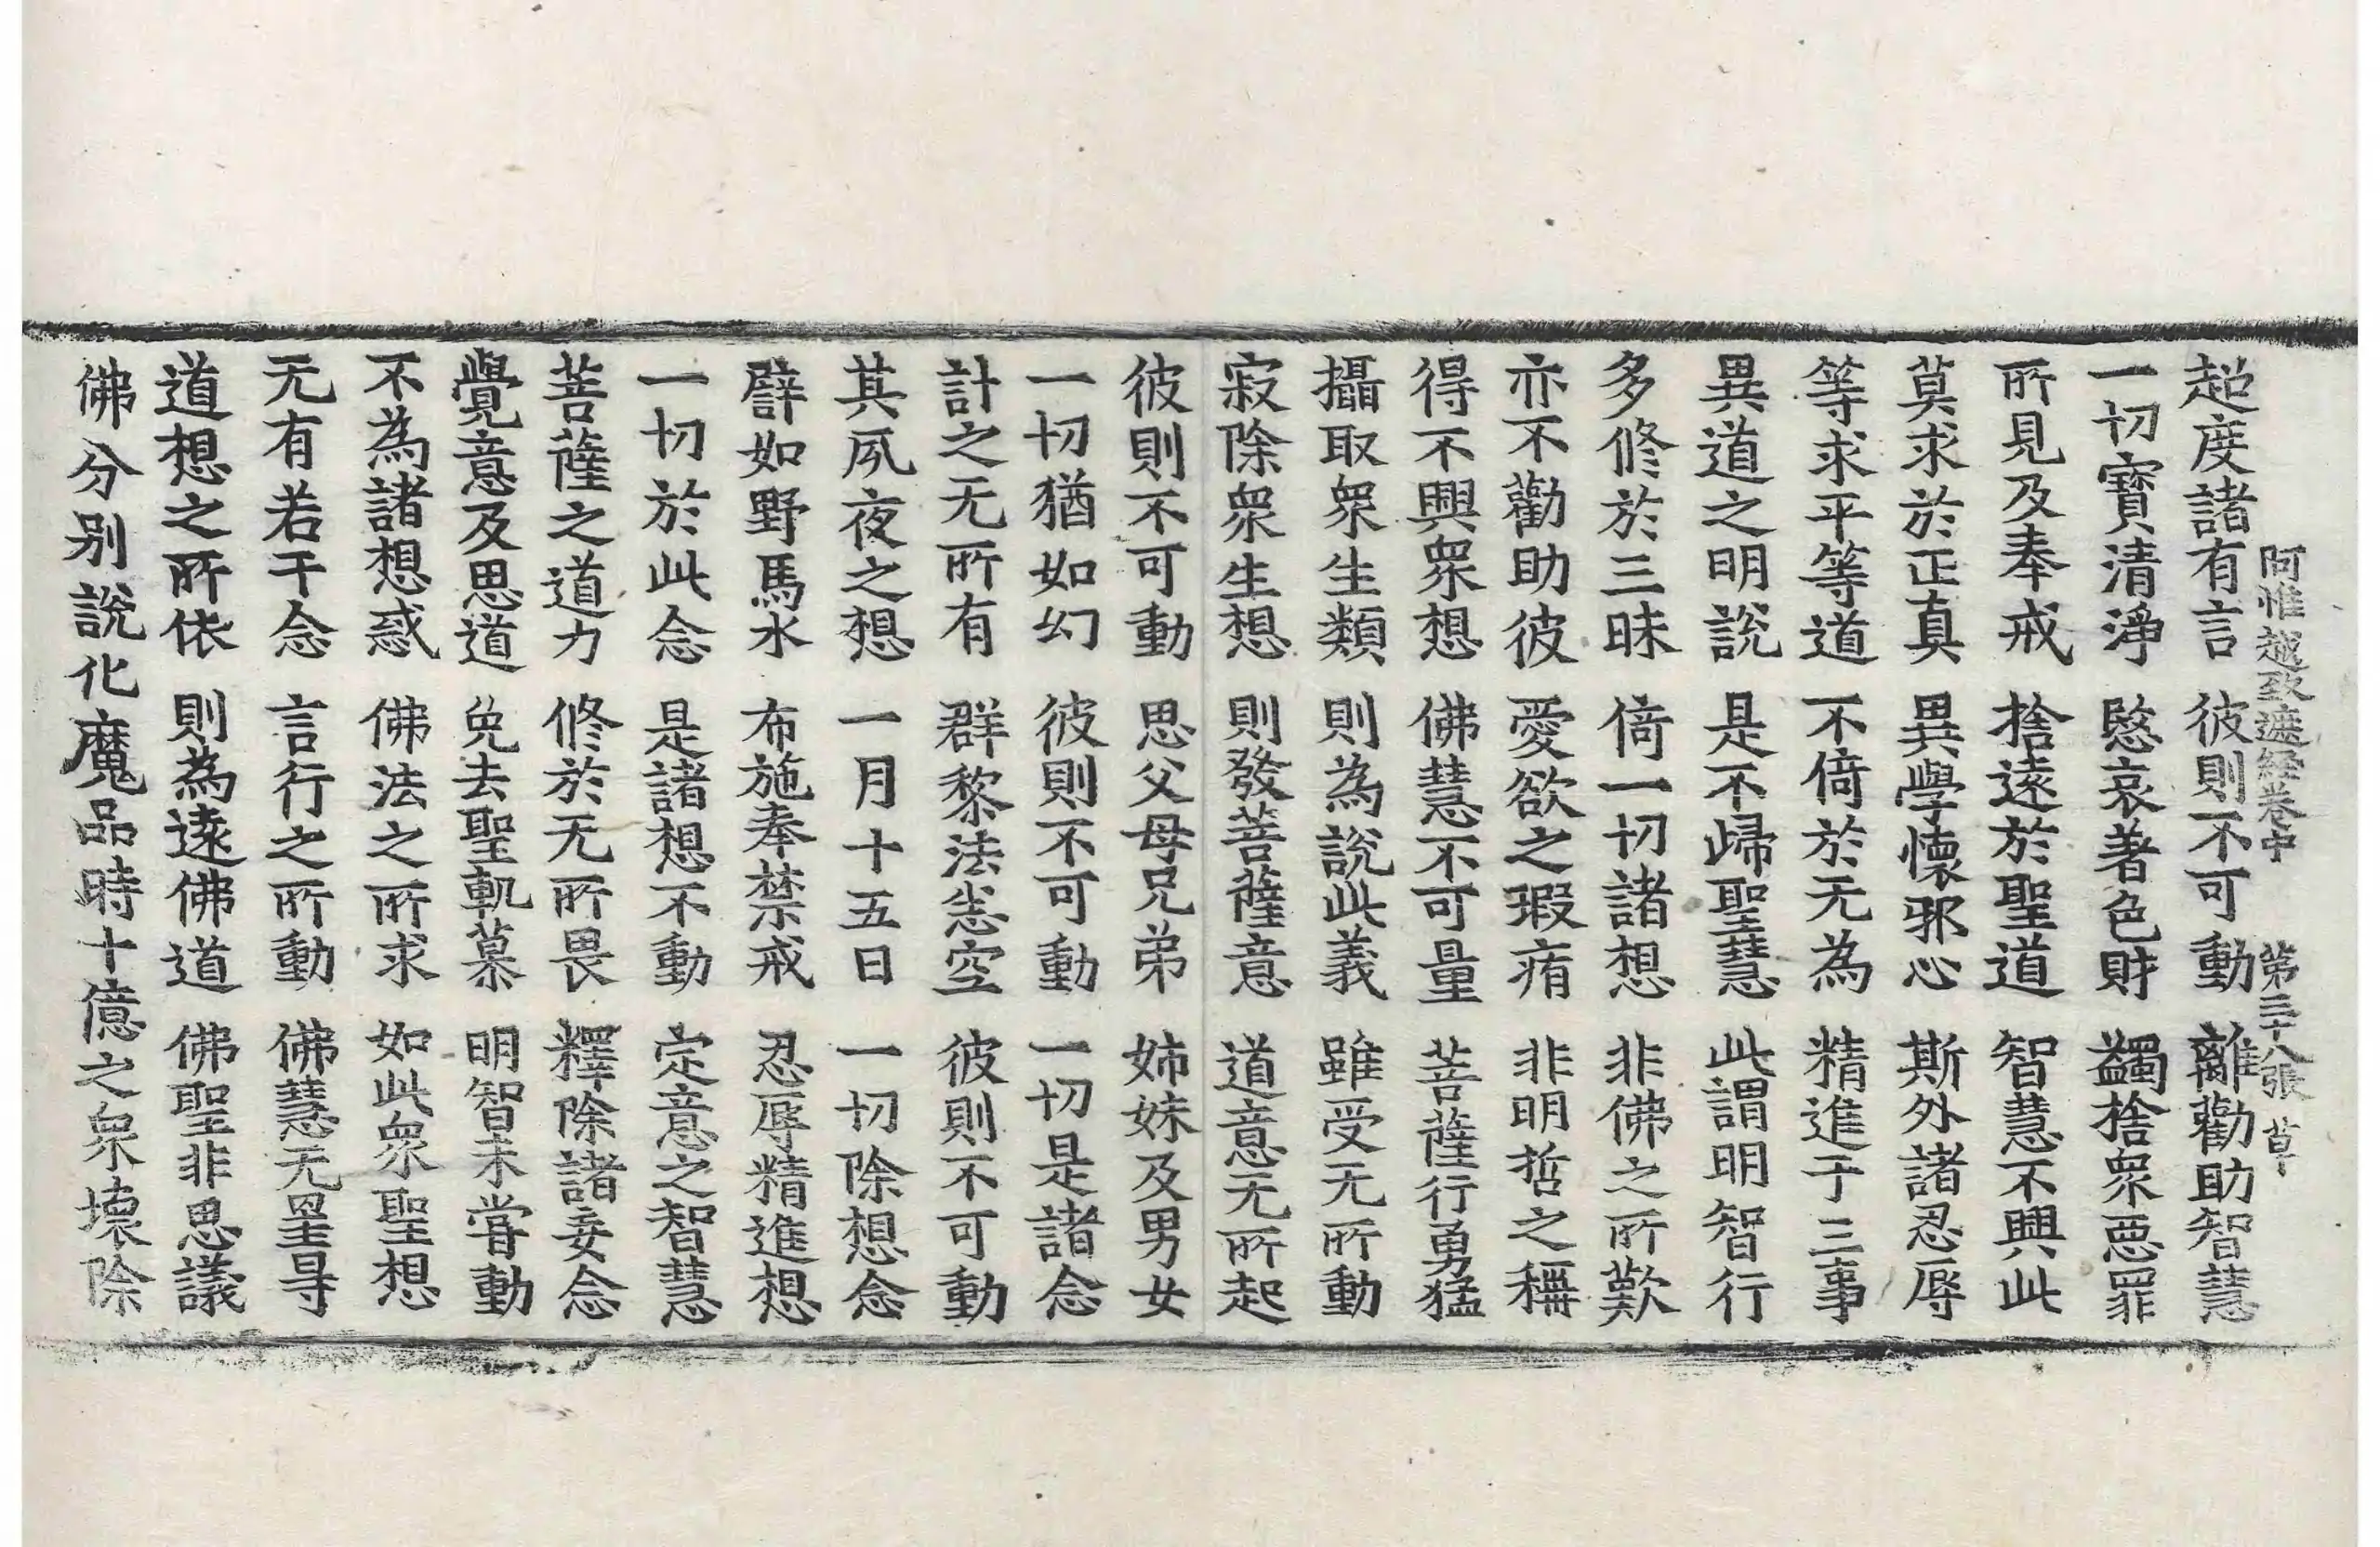 阿惟越致遮經卷中　第三十八張　草
超度諸有言　彼則不可動　離勸助智慧
一切寶清淨　愍哀著色財　蠲捨衆惡罪
所見及奉戒　捨遠於聖道　智慧不興此
莫求於正真　異學懷邪心　斯外諸忍辱
等求平等道　不倚於无為　精進于三事
異道之明說　是不歸聖慧　此謂明智行
多修於三昧　倚一切諸想　非佛之所歎
亦不勸助彼　愛欲之瑕疻　非明哲之稱
得不興衆想　佛慧不可量　菩薩行勇猛
攝取衆生類　則為說此義　雖受无所動
寂除衆生想　則發菩薩意　道意无所起
彼則不可動　思父母兄弟　姉妹及男女
一切猶如幻　彼則不可動　一切是諸念
計之无所有　群黎法恙空　彼則不可動
其夙夜之想　一月十五日　一切除想念
譬如野馬水　布施奉禁戒　忍辱精進想
一切於此念　是諸想不動　定意之智慧
菩薩之道力　修於无所畏　釋除諸妄念
覺意及思道　免去聖軌慕　明智未甞動
不為諸想惑　佛法之所求　如此衆聖想
无有若干念　言行之所動　佛慧无罣㝵
道想之所依　則為遠佛道　佛聖非思議
佛分别說化魔品時十億之衆壞除